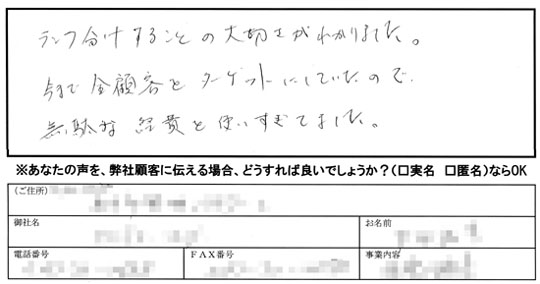 ランク分けすることの大切さがわかりました。
今まで全顧客をターゲットにしていたので、
無駄な経費を使いすぎてました。
※あなたの声を、弊社顧客に伝える場合、どうすれば良いでしょうか？(□実名 □匿名)ならOK
(ご住所)
御社名 お名前
電話番号 ＦＡＸ番号 事業内容